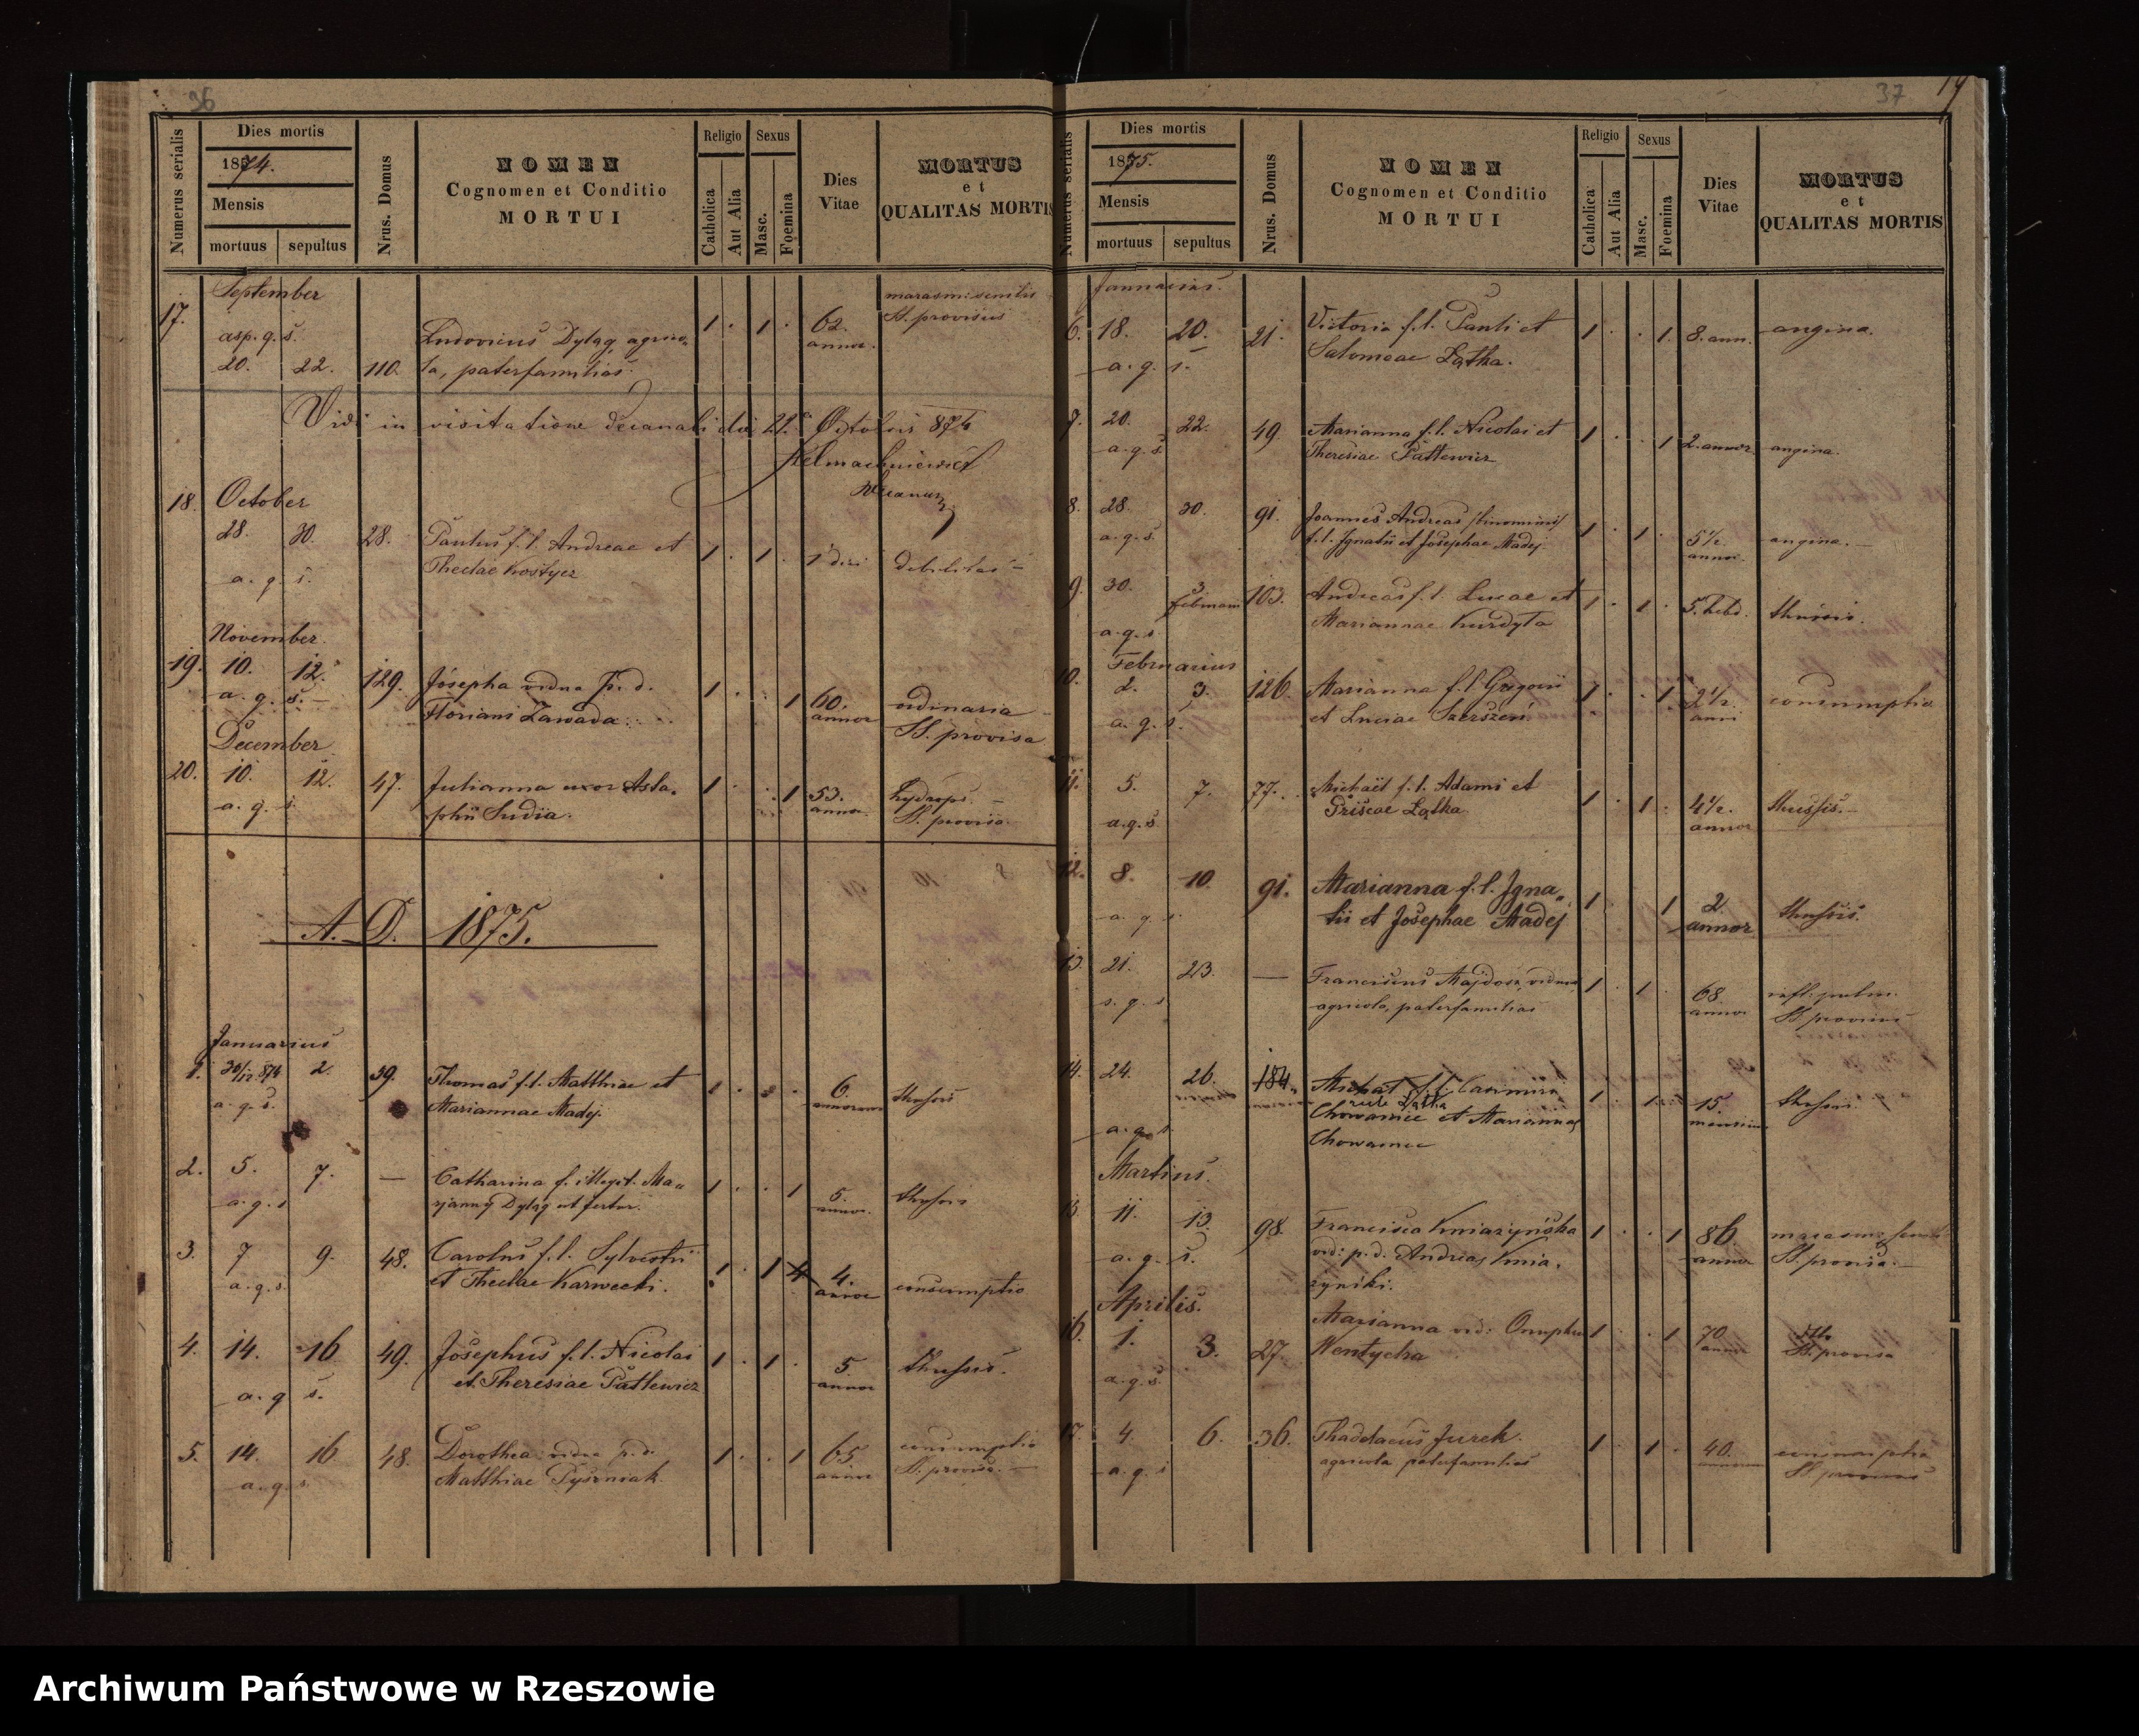 36
Numerus serialis
Dies mortis
1874.
Mensis
mortuus
sepultus
Nrus. Domus
NOMEN
Cognomen et Conditio
MORTUI
Religio
Catholica
Aut Alia
Sexus
Masc.
Foemina
Dies
Vitae
MORTUS
et
QUALITAS MORTIS
September
17. asp. q. s.
20. 22. 110. Ludovicus Dyląg agrico-
la, paterfamilias. 1 . 1 . 62. annor.
marasm: senilis
SS. provisus
Vidi in visitatione decanali die 22. Octobris 874
Decanus
October
18. 28. 30. 28. Paulus f. l. Andreae et
Theclae Kostycz 1 . 1 . 1 diei debilitas
a. q. s.
November.
19. 10. 12. 129. Josepha vidua p. d.
Floriani Zawada. 1 . . 1 60. annor ordinaria
SS. provisa
a. q. s.
December
20. 10. 12. 47. Julianna uxor Asta-
phii Sudia. 1 . . 1 53. annor. hydrops.
SS. provisa.
a. q. s.
A. D. 1875.
Januarius
1. 30/12 874 2. 39. Thomas f. l. Matthiae et
Mariannae Madej. 6. annorum thussis
a. q. s.
2. 5. 7. — Catharina f. illegit. Ma-
rjanny Dyląg ut fertur. 1 . . 1 5. annor. thussis
a. q. s
3. 7 9. 48. Carolus f. l. Sylvestri
et Theclae Karwecki. 1 . 1 4. annor consumptio
a. q. s.
4. 14. 16 49. Josephus f. l. Nicolai
et Theresiae Patlewicz 1 . 1 . 5 annor thussis.
a. q s.
5. 14. 16 48. Dorothea vidua p. d.
Matthiae Pyśniak. 1 . . 1 65 annor consumptio
SS. provisa.
a. q. s.
37
19
Numerus serialis
Dies mortis
1875.
Mensis
mortuus
sepultus
Nrus. Domus
NOMEN
Cognomen et Conditio
MORTUI
Religio
Catholica
Aut Alia
Sexus
Masc.
Foemina
Dies
Vitae
MORTUS
et
QUALITAS MORTIS
Januarius.
6. 18. 20. 21. Victoria f. l. Pauli et
Salomeae Łątka. 1 . . 1. 8. ann. angina.
a. q. s.
7. 20. 22. 49. Marianna f. l. Nicolai et
Theresiae Patlewicz 1 . . 1 2. annor. angina.
a. q. s
8. 28. 30. 91. Joannes Andreas /binominis/
f. l. Ignatii et Josephae Madej 1 . 1 . 5 1/2 annor. angina.
a. q. s.
9. 30. 3 februarii 103. Andreas f. l. Lucae et
Mariannae Kurdyła 1 . 1 . 5. hebd. thussis.
a. q. s
Februarius
10. 2. 3. 126. Marianna f. l. Gregorii
et Luciae Szerszeń. 1 . . 1 2 1/2. anni consumptio
a. q. s.
11. 5. 7. 77. Michaël f. l. Adami et
Priscae Łątka. 1 . 1 . 4 1/2. annor thussis.
a. q. s
12. 8. 10. 91. Marianna f. l. Igna-
tii et Josephae Madej 1 1 2. annor thussis.
a. q. s.
13. 21. 23. — Franciscus Majdosz, viduus
agricola, paterfamilias 1 . 1 . 68. annor infl. pulm.
SS. provisus
s. q. s
14. 24. 26. 184. Michael f. l. Casimiri
recte Łątka
Chowaniec et Mariannae
Chowaniec 1 . 1 15. mensium thussis.
a. q. s.
Martius.
15. 11. 13. 98. Francisca Kniażyńska
vid: p. d. Andreas Knia-
żyński. 1 . . 1 86. annor marasm: senil:
SS. provisa.
a. q. s.
Aprilis.
16. 1. 3. 27. Marianna vid: Onuphrii
Wentycha 1 . . 1 70. annor dtto
SS. provisa
a. q. s.
17. 4. 6. 36. Thaddaeus Jurek.
agricola paterfamilias 1 . 1 . 40. annorum consumptio
SS. provisus
a. q. s
Archiwum Państwowe w Rzeszowie